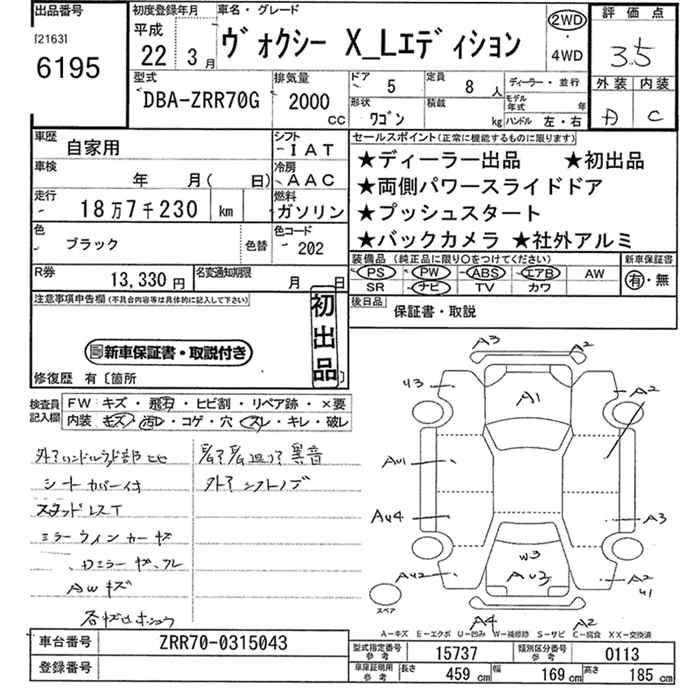 出品番号
[2163]
6195
初度登録年月
平成
22 3月
車名・グレード
ヴォクシー X_Lエディション
2WD
・
4WD
評価点
3.5
外装 内装
C
型式
DBA-ZRR70G
排気量
2000
CC
ドア 5
定員 8 人
形状
ワゴン
積載
kg
ディーラー・並行
モデル年式 年
ハンドル 左・右
車歴
自家用
シフト
IAT
車検
年 月( 日)
冷房
AAC
走行
18万7千230 km
燃料
ガソリン
色
ブラック
色替
色コード
202
R券
13,330円
名変通知期限
月 日
セールスポイント(正常に機能するものに限ります)
★ディーラー出品 ★初出品
★両側パワースライドドア
★プッシュスタート
★バックカメラ ★社外アルミ
装備品 (純正品に限り○をつけてください)
新車保証書
PS PW ABS エアB AW
SR ナビ TV カワ
有・無
後日品
保証書・取説
注意事項申告欄(不具合内容等は具体的に記入して下さい)
初出品
新車保証書・取説付き
修復歴 有〔箇所 〕
検査員記入欄
FW キズ・飛石・ヒビ割・リペア跡・×要
内装 キズ・汚レ・コゲ・穴・スレ・キレ・破レ
シートカバー付
ミラーウィンカーキズ
AWキズ
外アシフトノブ
A3
A2
U3
A1
A2
AU1
AU4
A3
W3
AU3
AU2
A2
U1
A4
A2
スペア
A-キズ E-エクボ U-凹み W-補修跡 S-サビ C-腐食 XX-交換済
車台番号
ZRR70-0315043
登録番号
型式指定番号
参考
15737
類別区分番号
参考
0113
車庫証明用
参考
長さ 459 cm
幅 169 cm
高さ 185 cm